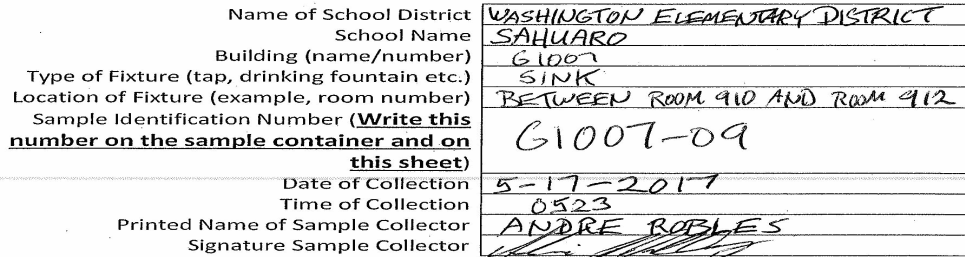 Name of School District WASHINGTON ELEMENTARY DISTRICT
School Name SAHUARO
Building (name/number) G1007
Type of Fixture (tap, drinking fountain etc.) SINK
Location of Fixture (example, room number) BETWEEN ROOM 910 AND ROOM 912
Sample Identification Number (Write this
number on the sample container and on
this sheet) G1007-09
Date of Collection 5-17-2017
Time of Collection 0523
Printed Name of Sample Collector ANDRE ROBLES
Signature Sample Collector